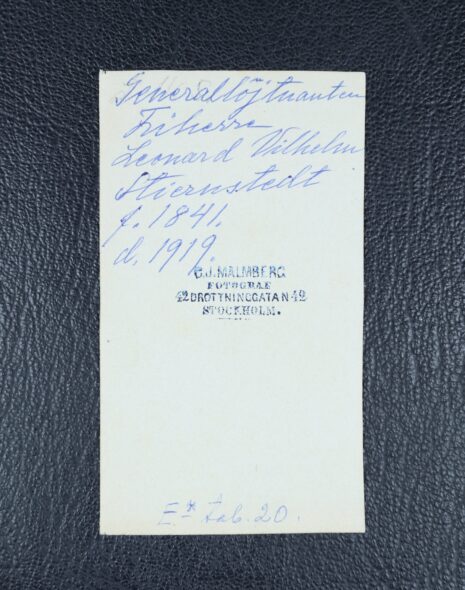 Generallöjtnanten
Friherre
Leonard Vilhelm
Stiernstedt
f. 1841.
d. 1919.
C.J. MALMBERG
FOTOGRAF
42 DROTTNINGGATAN 42
STOCKHOLM.
E* tab. 20.